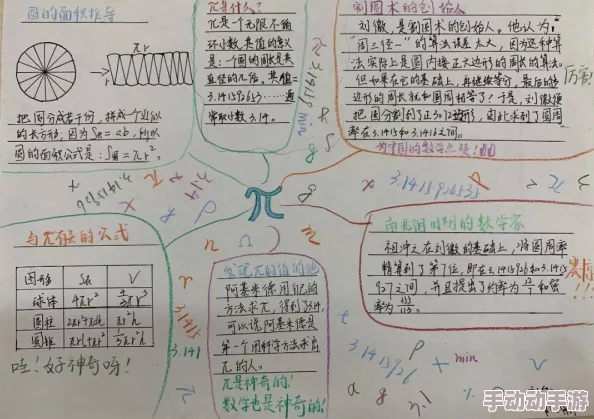 圆的面积推导
πr
r
把圆分成若干份，拼成个近似
的长方形，因为S长=ab，所以
圆的面积公式是：S圆=πr²。
π是什么？
π是一个无限不循
环小数，其值的含义
是：一个圆的周长是其
直径的几倍，其值=
3.141592653……通
常取小数3.14。
割圆术的创始人
刘徽，是割圆术的创始人。他认为：
"周三径一"的算法误差太大，因为这种算
法实际上是圆内接正六边形的周长的算法。
但如果在它的基础上，再继续等分，最后的多
边形的周长就和圆周相等了！于是，刘徽便
把圆分割到了正3072边形，因此求到了圆周
率在3.14和3.1416之间。
为中国的数学点赞！
厉害！
π
3.1415926535
与π有关的公式
图形 S表 V
球体 4πr² 4/3πr³
圆柱
圆锥
哇！好神奇呀！
3.1415
3.141
发现π的值的他
阿基米德用他的
方法求π，得到了3.14，
可以说阿基米德是
第一个用科学方法求出
π的人。
π是神奇的！
数学也是神奇的！
南北朝时期的数学家
祖冲之在刘徽的基础上，将圆周率
精算到了第7位，即在3.1415926和3.1415
927之间，并且提出了约率为22/7和密
率为355/113。
3.1415926
min
手动动手游